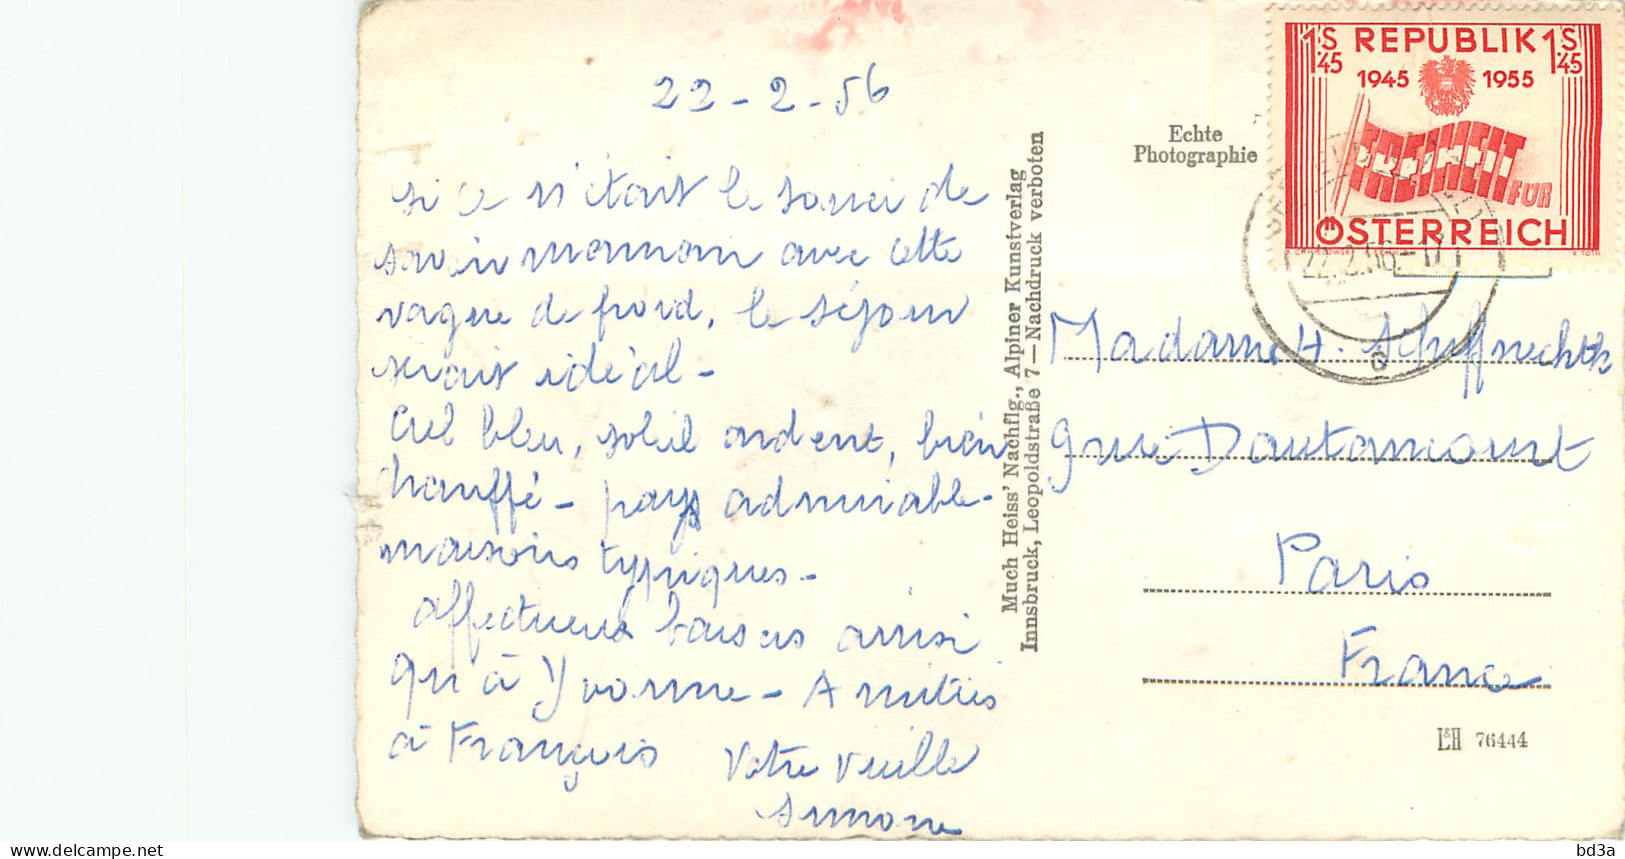 22-2-56
si ce n'était le souci de
savoir maman avec cette
vague de froid, le séjour
serait idéal-
Ciel bleu, soleil ardent, bien
chauffé - pays admirable-
maisons typiques-
affectueux baisers ainsi
qu'à Yvonne - Amitiés
à François
Votre vieille
Simone
Much Heiss' Nachflg., Alpiner Kunstverlag
Innsbruck, Leopoldstraße 7 — Nachdruck verboten
Echte
Photographie
1S45 REPUBLIK 1S45
1945 1955
FREIHEIT FÜR
ÖSTERREICH
22.2.56.-17
c
Madame H.
9 rue Dautancourt
Paris
France
L&H 76444
bd3a